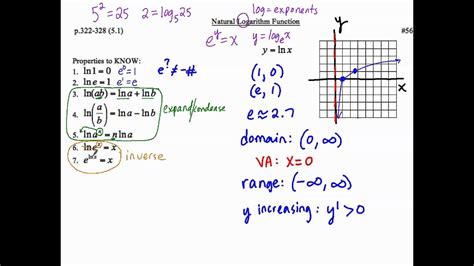 5² = 25   2 = log₅25   log = exponents
p.322-328 (5.1)   Natural Logarithm Function   #56
eʸ = x   y = logₑx
y = ln x
Properties to KNOW:
1. ln 1 = 0   e⁰ = 1   e^? ≠ -#
2. ln e = 1   e¹ = e
3. ln(ab) = ln a + ln b
4. ln(a/b) = ln a − ln b
expand/condense
5. ln aⁿ = n ln a
6. ln eˣ = x
7. e^(ln x) = x
inverse
(1, 0)
(e, 1)
e ≈ 2.7
domain: (0, ∞)
VA: x = 0
range: (-∞, ∞)
y increasing: y' > 0
y
x